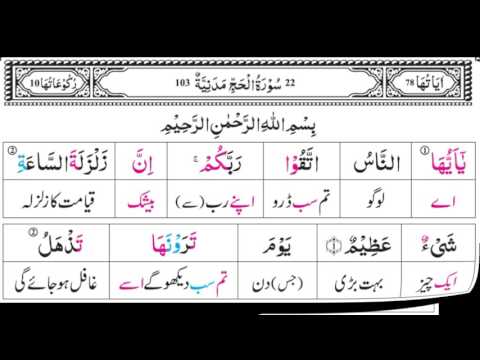 اٰیَاتُهَا 78 22 سُوْرَةُ الْحَجِّ مَدَنِیَّةٌ 103 رُكُوْعَاتُهَا 10
بِسْمِ اللهِ الرَّحْمٰنِ الرَّحِیْمِ
یٰۤاَیُّهَا ① النَّاسُ اتَّقُوْا رَبَّكُمْ ۚ اِنَّ زَلْزَلَةَ السَّاعَةِ ②
اے لوگو تم سب ڈرو اپنے رب (سے) بیشک قیامت کا زلزلہ
شَیْءٌ عَظِیْمٌ ۝۱ یَوْمَ تَرَوْنَهَا تَذْهَلُ ③
ایک چیز بہت بڑی (جس) دن تم سب دیکھو گے اسے غافل ہو جائے گی